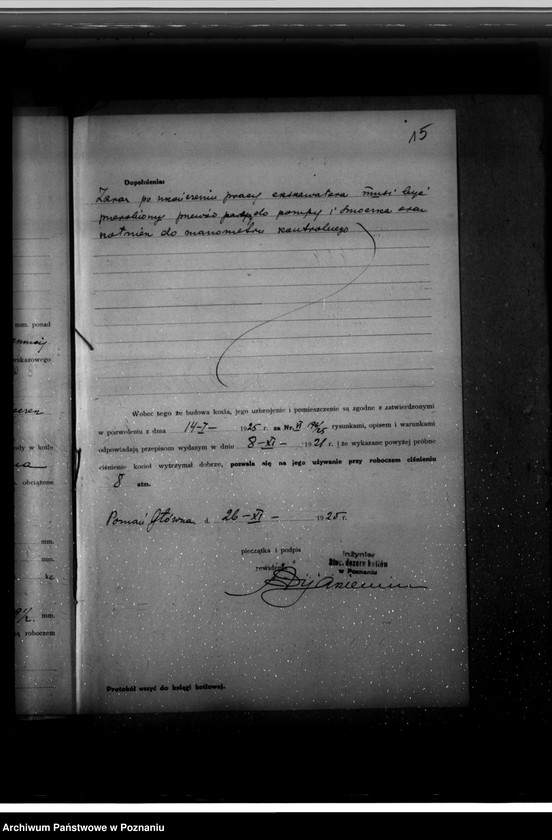 15
Dopełnienia:
Zaraz po ukończeniu pracy ekskawatora musi być
przerobiony przewód do pompy i smoczka oraz
kołnierz do manometru kontrolnego
mm. ponad
wskazowego
wody w kotle
obciążone
mm.
mm.
kg.
mm.
roboczem
Wobec tego że budowa kotła, jego uzbrojenie i pomieszczenie są zgodne z zatwierdzonymi
w pozwoleniu z dnia 14-I- 1925 r. za Nr. VI rysunkami, opisem i warunkami
odpowiadają przepisom wydanym w dniu 8-XI- 1921 r. i że wykazane powyżej próbne
ciśnienie kocioł wytrzymał dobrze, pozwala się na jego używanie przy roboczem ciśnieniu
8 atm.
Poznań Główna d. 26-XI- 1925 r.
pieczątka i podpis
rewidenta
Inżynier
Stow. dozoru kotłów
w Poznaniu
Protokół wszyć do księgi kotłowej.
Archiwum Państwowe w Poznaniu